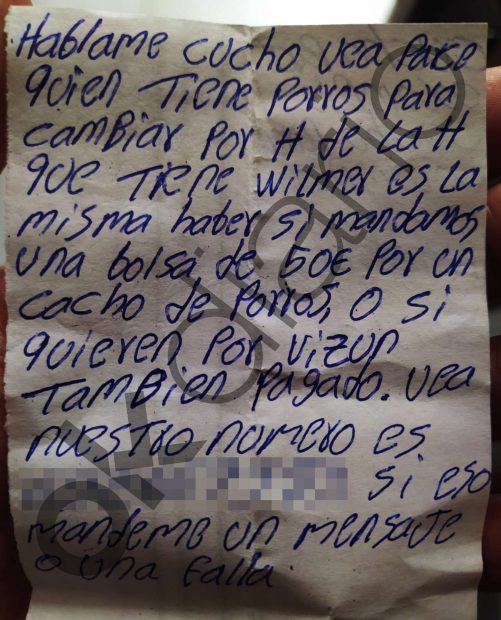 Hablame cucho vea Pace
quien Tiene Porros Para
cambiar Por H de La H
que Tiene wilmer es La
misma haber si mandamos
una bolsa de 50€ Por un
cacho de Porros, O si
quieren Por vizun
Tambien Pagado. vea
nuestro numero es
si eso
mandeme un mensaje
o una Falla.
okdiario